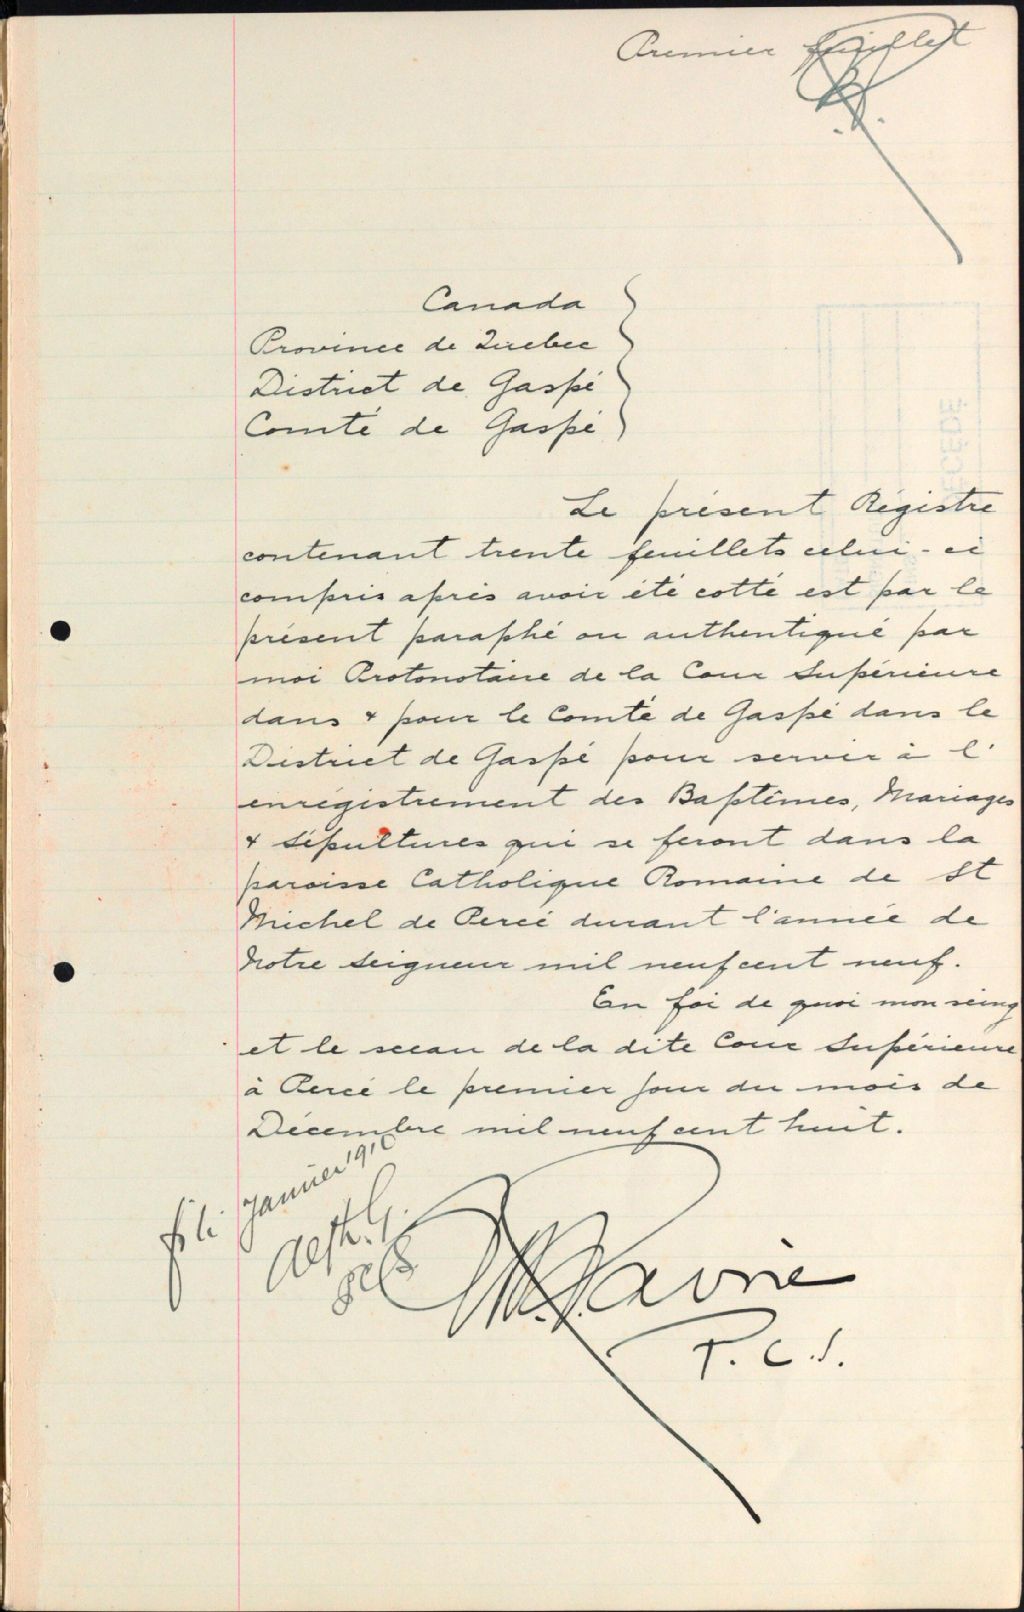 Premier feuillet
Canada
Province de Québec
District de Gaspé
Comté de Gaspé
Le présent Régistre
contenant trente feuillets celui-ci
compris après avoir été cotté est par le
présent paraphé ou authentiqué par
moi Protonotaire de la Cour Supérieure
dans & pour le Comté de Gaspé dans le
District de Gaspé pour servir à l'
enrégistrement des Baptêmes, Mariages
& Sépultures qui se feront dans la
paroisse Catholique Romaine de St
Michel de Percé durant l'année de
Notre Seigneur mil neuf cent neuf.
En foi de quoi mon seing
et le sceau de la dite Cour Supérieure
à Percé le premier jour du mois de
Décembre mil neuf cent huit.
filé Janvier 1910
Lavoie
P.C.S.